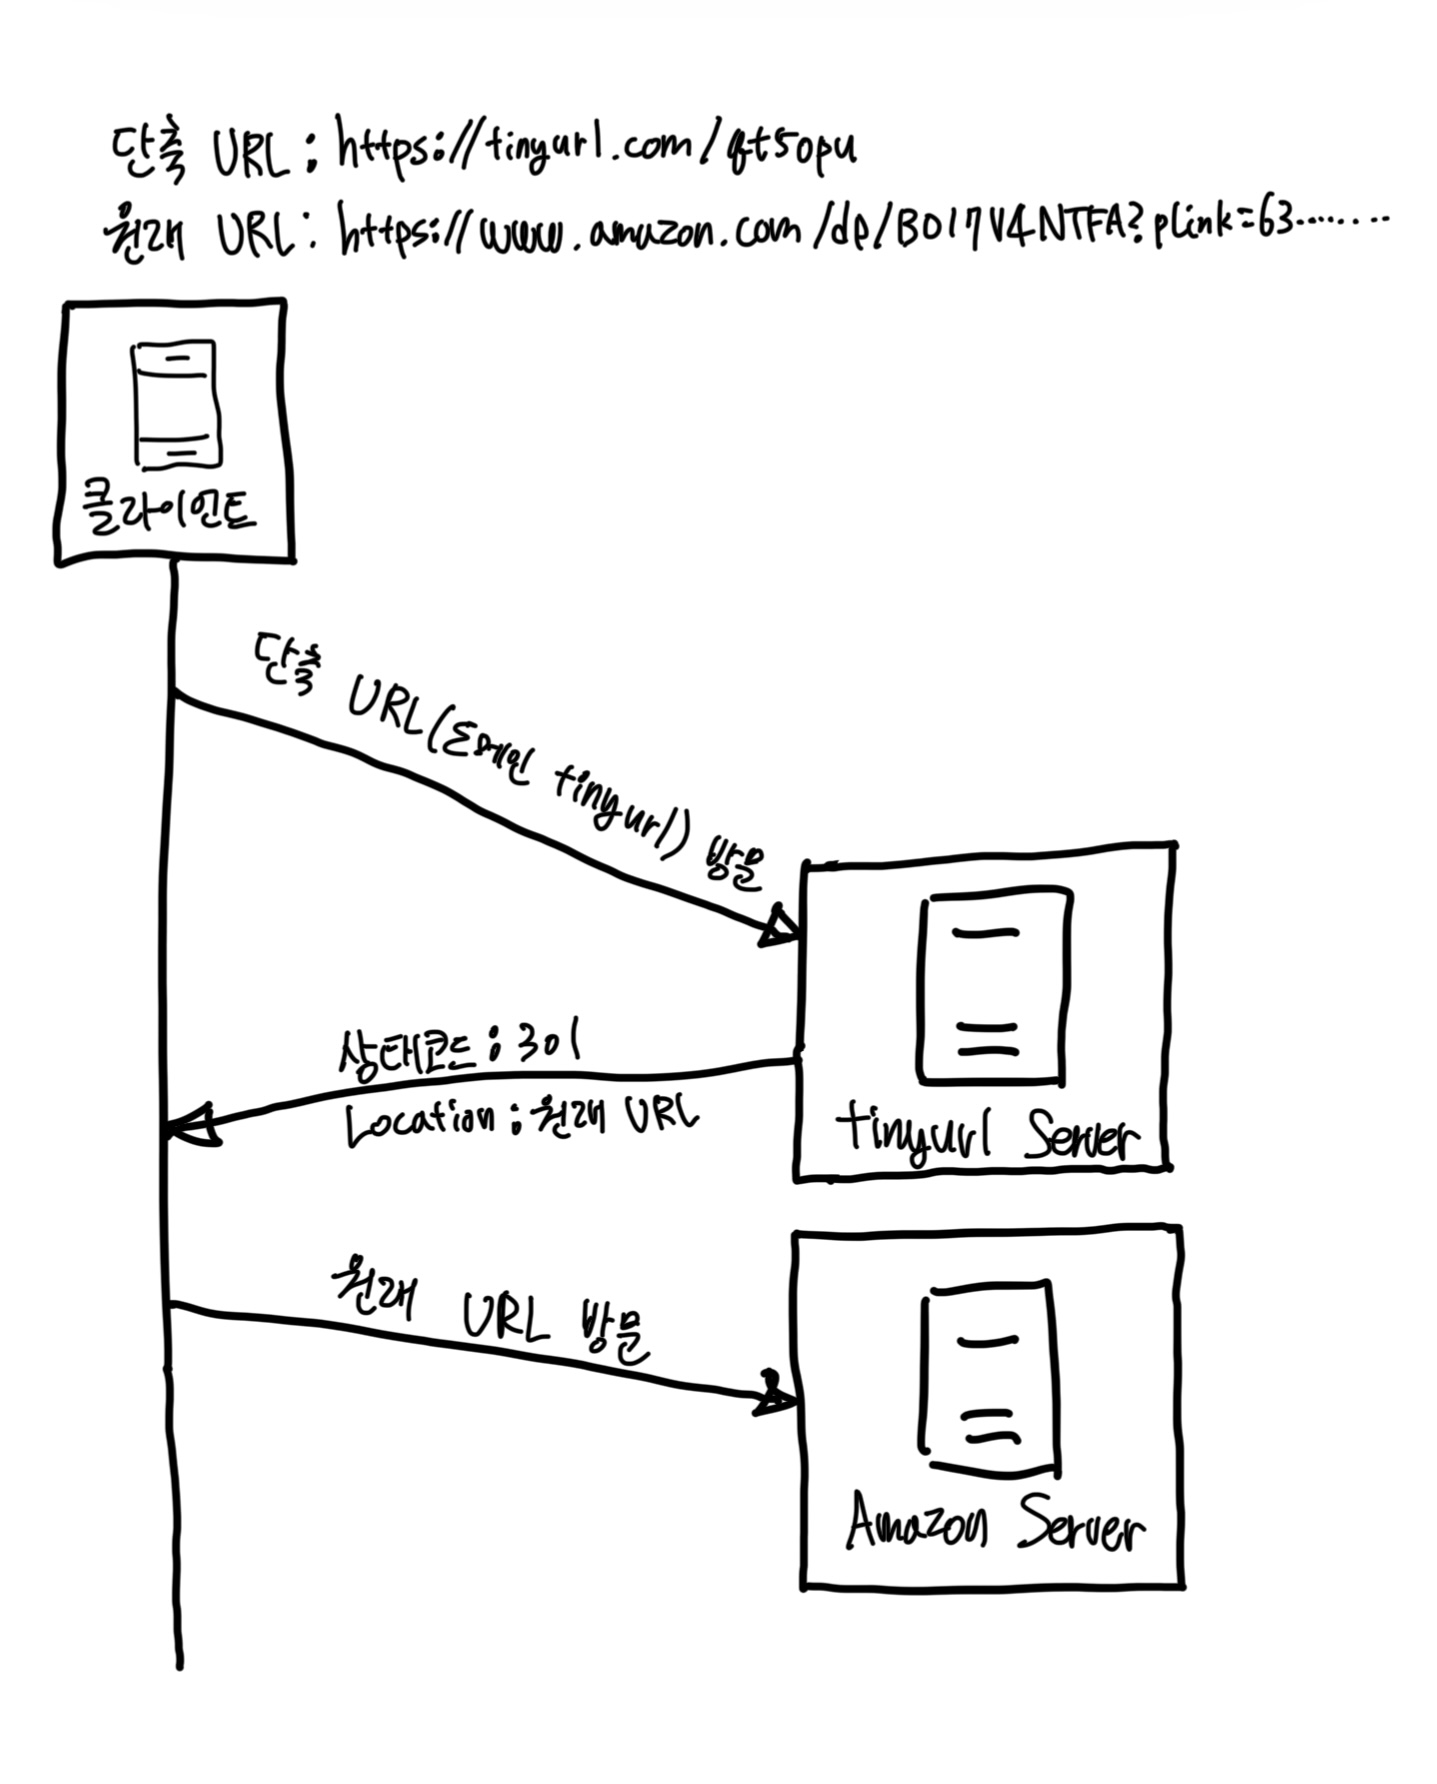 단축 URL : https://tinyurl.com/qt5opu
원래 URL : https://www.amazon.com/dp/B017V4NTFA?plink=63........
클라이언트
단축 URL(도메인 tinyurl) 방문
상태코드 : 301
Location : 원래 URL
tinyurl Server
원래 URL 방문
Amazon Server